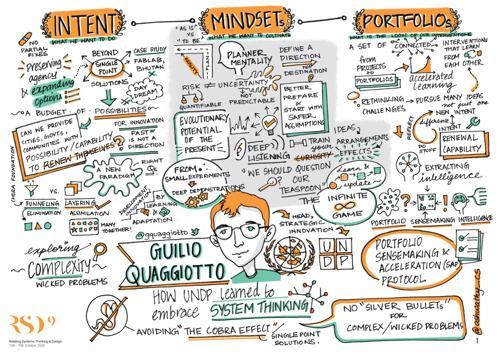 INTENT
WHAT WE WANT TO DO
MINDSETs
WHAT WE WANT TO CULTIVATE
PORTFOLIOs
WHAT IS THE LOGIC OF OUR INTERVENTIONS
NO
PARTIAL
FIXES
Preserving
agency
& expanding
options
BEYOND
SINGLE
POINT
SOLUTIONS
CASE STUDY
FABLAB,
BHUTAN
DAY
DREAM
A BUDGET OF POSSIBILITIES
CAN WE PROVIDE
CITIES, GOVTS,
COMMUNITIES WITH
POSSIBILITY/CAPABILITY
TO RENEW THEMSELVES?
FOR INNOVATION
FAST
IS NOT A
DIRECTION
A NEW
PARADIGM
RIGHT
CHÔRA FOUNDATION
VS.
FUNNELING
ELIMINATION
LAYERING
ACCUMULATION
MANY
TOGETHER!
BY
LEARNING
&
ADAPTATION
exploring
COMPLEXITY
WICKED PROBLEMS
"AS IS"
VS
"TO BE"
PLANNER
MENTALITY
DEFINE A
DIRECTION
NOT
DESTINATION
RISK ≠ UNCERTAINTY
QUANTIFIABLE
NOT
PREDICTABLE
BETTER
PREPARE
TO
START WITH
SAFER
ASSUMPTIONS
EVOLUTIONARY
POTENTIAL
OF THE
PRESENT
DEEP
LISTENING
TRAIN
your
CURIOSITY
IDEAS
ARRANGEMENTS
EFFECTS
FROM
SMALL EXPERIMENTS
to
DEEP DEMONSTRATIONS
"WE SHOULD QUESTION
OUR
TEASPOON"
learn
&
update
THE
INFINITE
GAME
@gquaggiotto
GUILIO
QUAGGIOTTO
HEAD,
STRATEGIC
INNOVATION
UN
DP
HOW UNDP learned to
embrace SYSTEM THINKING
AVOIDING "THE COBRA EFFECT"
SINGLE POINT
SOLUTIONS.
A SET OF CONNECTED
INTERVENTIONS
THAT LEARN
FROM
EACH
OTHER
from
PROJECTS
to
PORTFOLIOS
accelerated
learning
RETHINKING
CHALLENGES
PURSUE MANY IDEAS
not just
one
NEW
different
INTENT
REFLECT
DO
STUFF
RENEWAL
CAPABILITY
EXTRACTING
intelligence
PORTFOLIO SENSEMAKING INTELLIGENCE
PORTFOLIO
SENSEMAKING &
ACCELERATION (SAP)
PROTOCOL
NO "SILVER BULLETS"
FOR
COMPLEX/WICKED PROBLEMS
RSD9
Relating Systems Thinking & Design
1